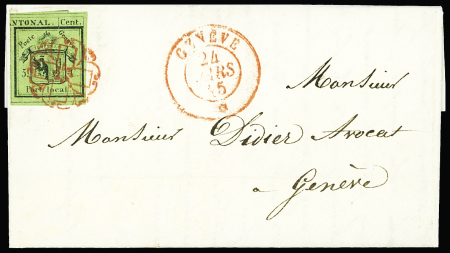 NTONAL. Cent.
Poste
Port local
GENÈVE
24
MARS
45
Monsieur
Monsieur Didier Avocat
a Genève